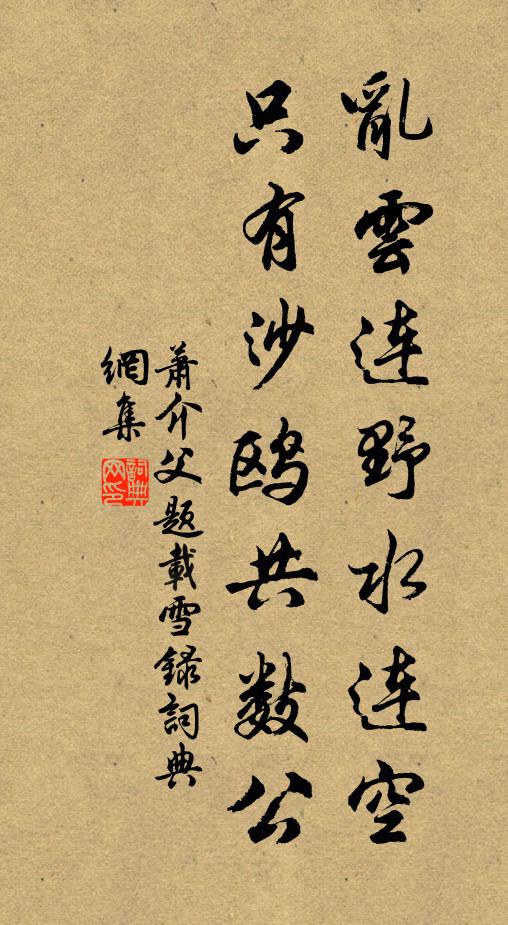 亂雲連野水連空
只有沙鷗共數公
蕭介父題載雪錄詞典
網集
詞典網印